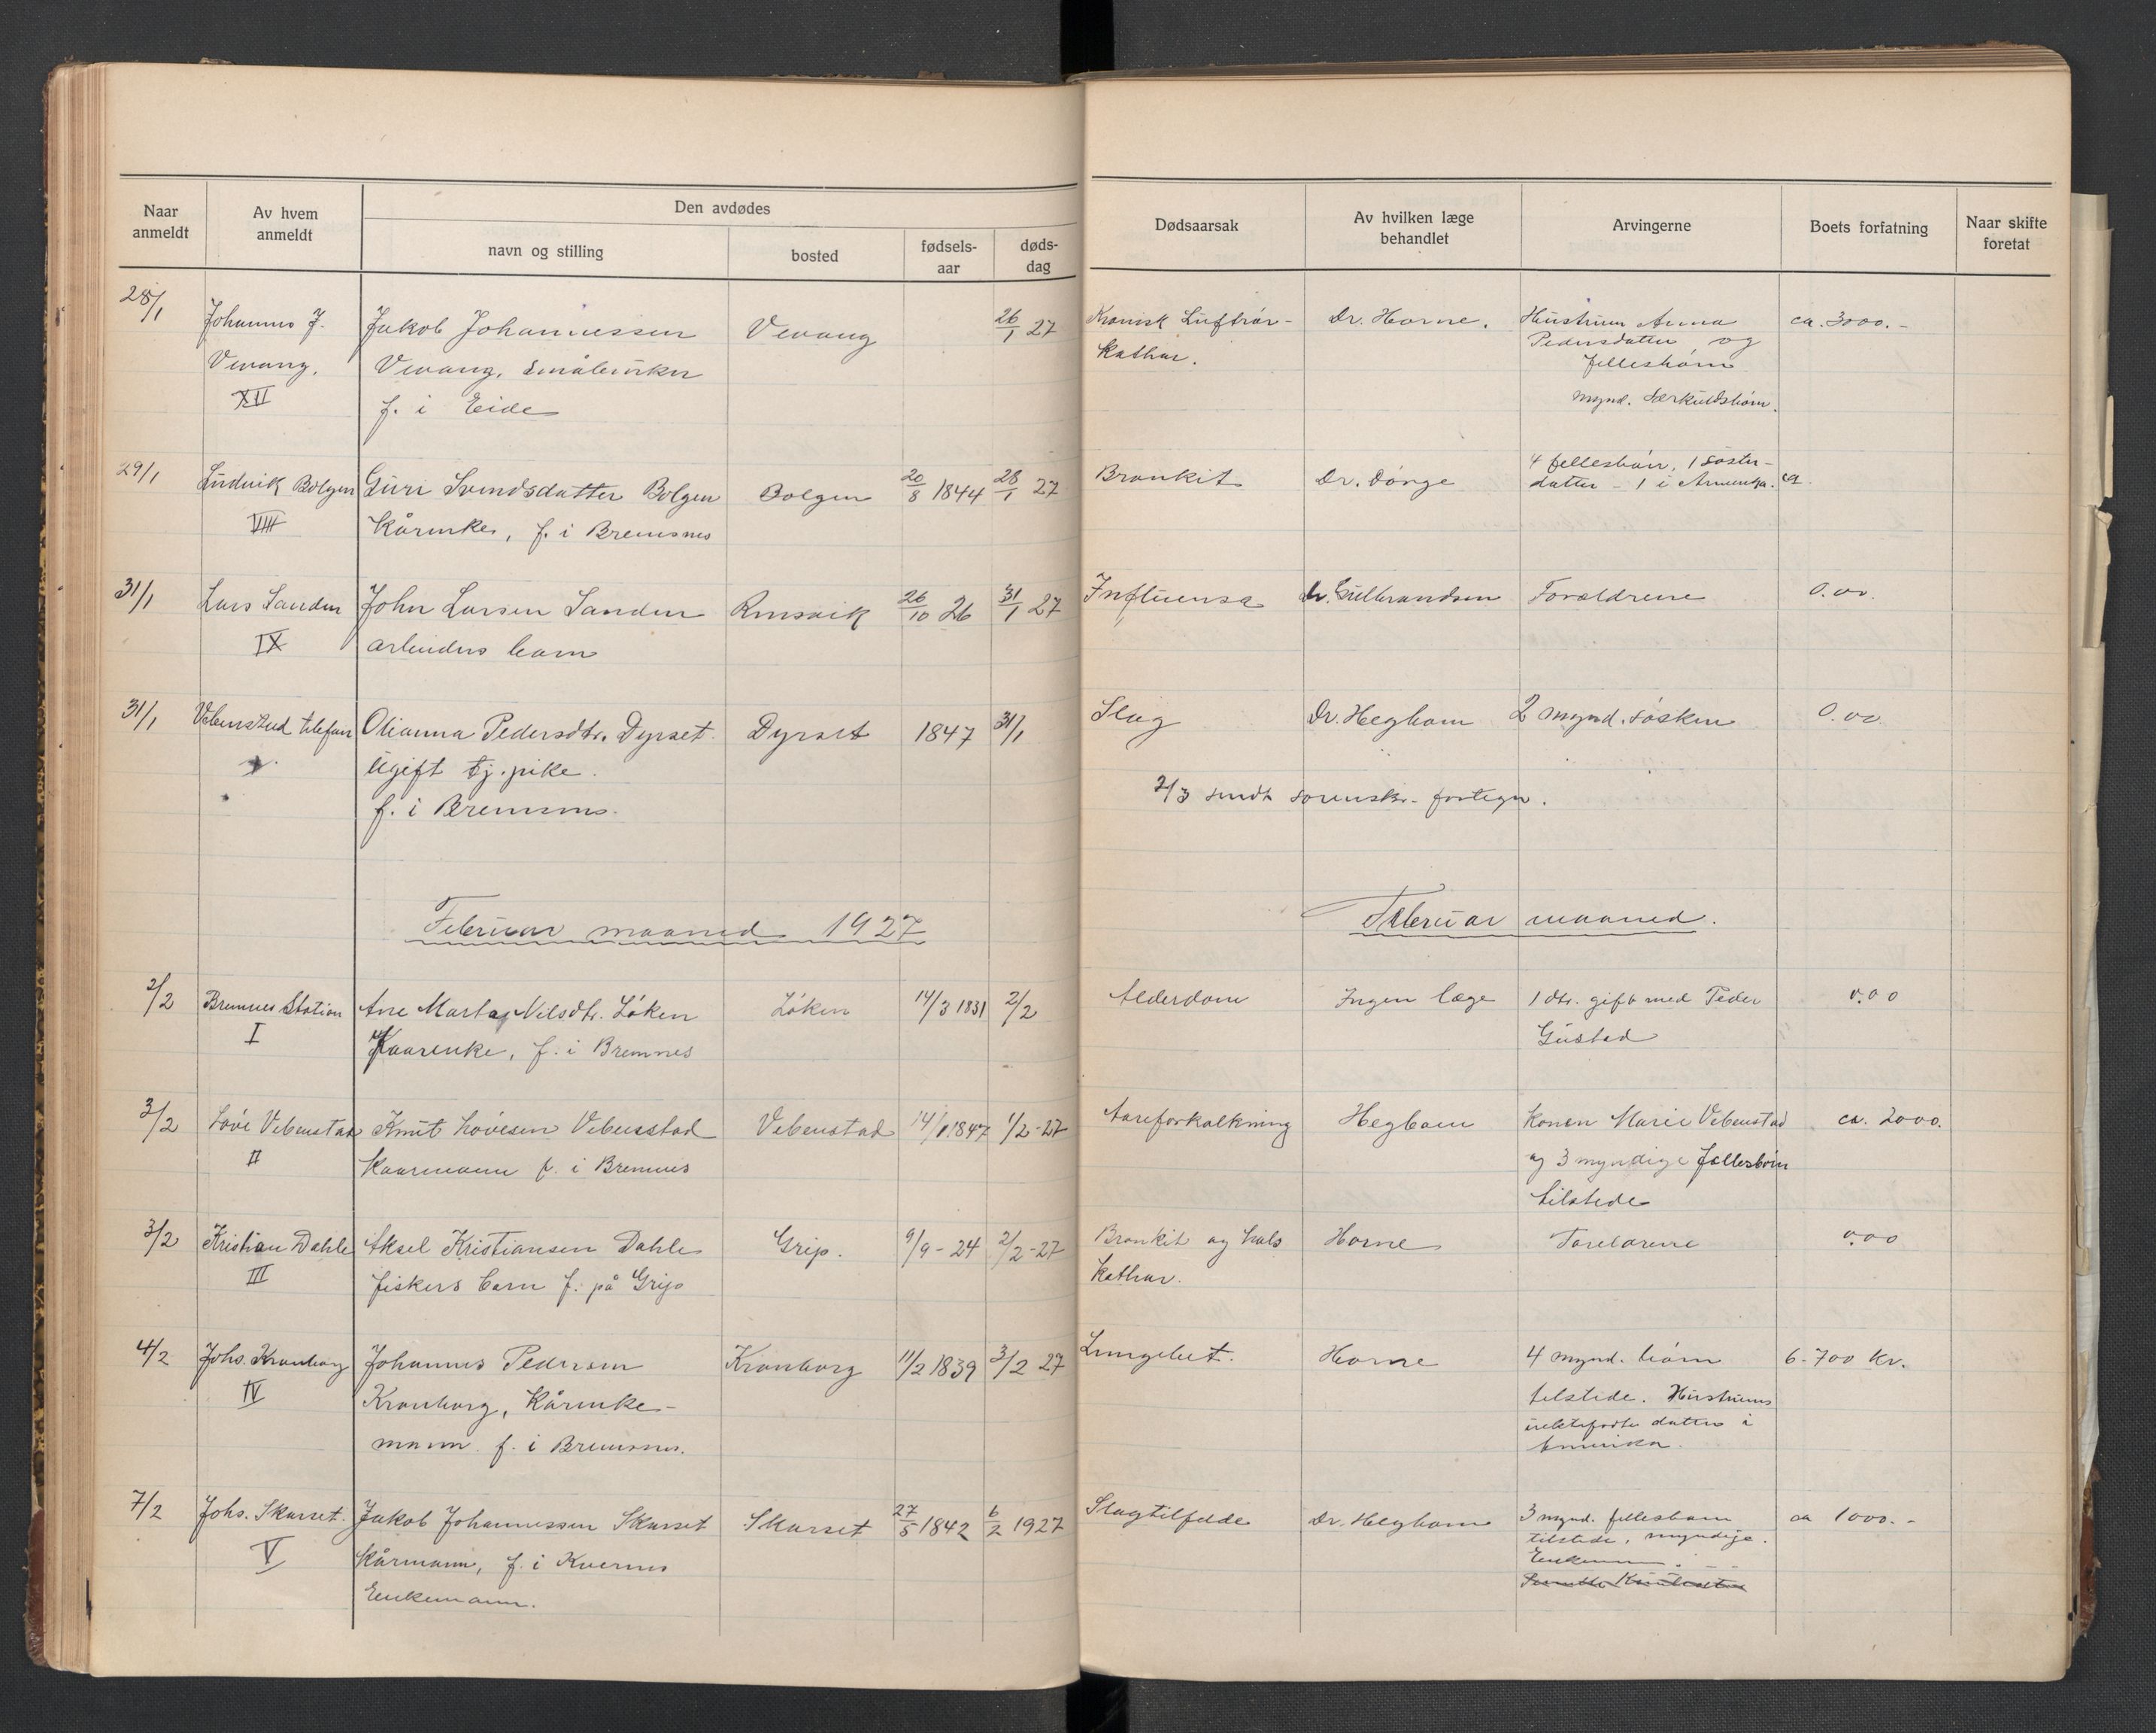 Naar anmeldt
Av hvem anmeldt
Den avdødes
navn og stilling
bosted
fødsels-aar
døds-dag
Dødsaarsak
Av hvilken læge behandlet
Arvingerne
Boets forfatning
Naar skifte foretat
28/1
Johannes J. Jakob Johannessen Vevang 26/1 27 Kronisk Luftrør- Dr. Horne. Hustruen Anna ca. 3000.-
Vevang, Vevang, småbruker Kathar. Pedersdatter og
XII f. i Eide fellesbørn
mynd. særkuldsbørn.
29/1 Ludvik Bolgen Guri Svendsdatter Bolgen Bolgen 20/8 1844 28/1 27 Bronkit Dr. Dønge 4 fellesbørn, 1 søster-
datter - 1 i Amerika.
VIII Kårenke, f. i Bremsnes
31/1 Lars Sanden John Larsen Sanden Rensvik 26/10 26 31/1 27 Influensa Dr. Gulbrandsen Forældrene 0.00.
IX arbeiders barn
31/1 Vebenstad telefon Olianna Pedersdtr. Dyrset Dyrset 1847 31/1 Slag Dr. Hegbom 2 mynd. søsken 0.00
Ugift tj. pike.
f. i Bremsnes.
2/3 sendt sorenskr. fortegn.
Februar maaned 1927
Februar maaned.
2/2 Bremnes Station Ane Marta Nilsdtr. Løken Løken 14/3 1831 2/2 Alderdom Ingen læge 1 dtr. gift med Peder 0.00
I Kaarenke, f. i Bremnes Gustad
3/2 Love Vebenstad Knut Lovesen Vebenstad Vebenstad 14/1 1847 1/2-27 Aareforkalkning Hegbom Konen Marie Vebenstad ca. 2000.
II Kaarmann f. i Bremnes og 3 myndige fællesbørn
tilstede
3/2 Kristian Dahle Aksel Kristiansen Dahle Grip. 9/9-24 2/2-27 Bronkit og hals Horne 0.00
III fiskers barn f. på Grip Kathar.
4/2 Johs. Kronborg Johannes Pedersen Kronborg 11/2 1839 3/2 27 Lungebet. Horne 4 mynd. børn 6-700 Kr.
IV Kronborg, Kårenke- tilstede. Hustruens
mann f. i Bremsnes. uektefødte datter i
Amerika.
7/2 Johs. Skarset. Jakob Johannessen Skarset Skarset 27/5 1842 6/2 1927 Slagtilfelde Dr. Hegbom 3 mynd. fellesbarn ca 1000.-
V Kårmann, f. i Kvernes tilstede, myndige.
Enkemann.